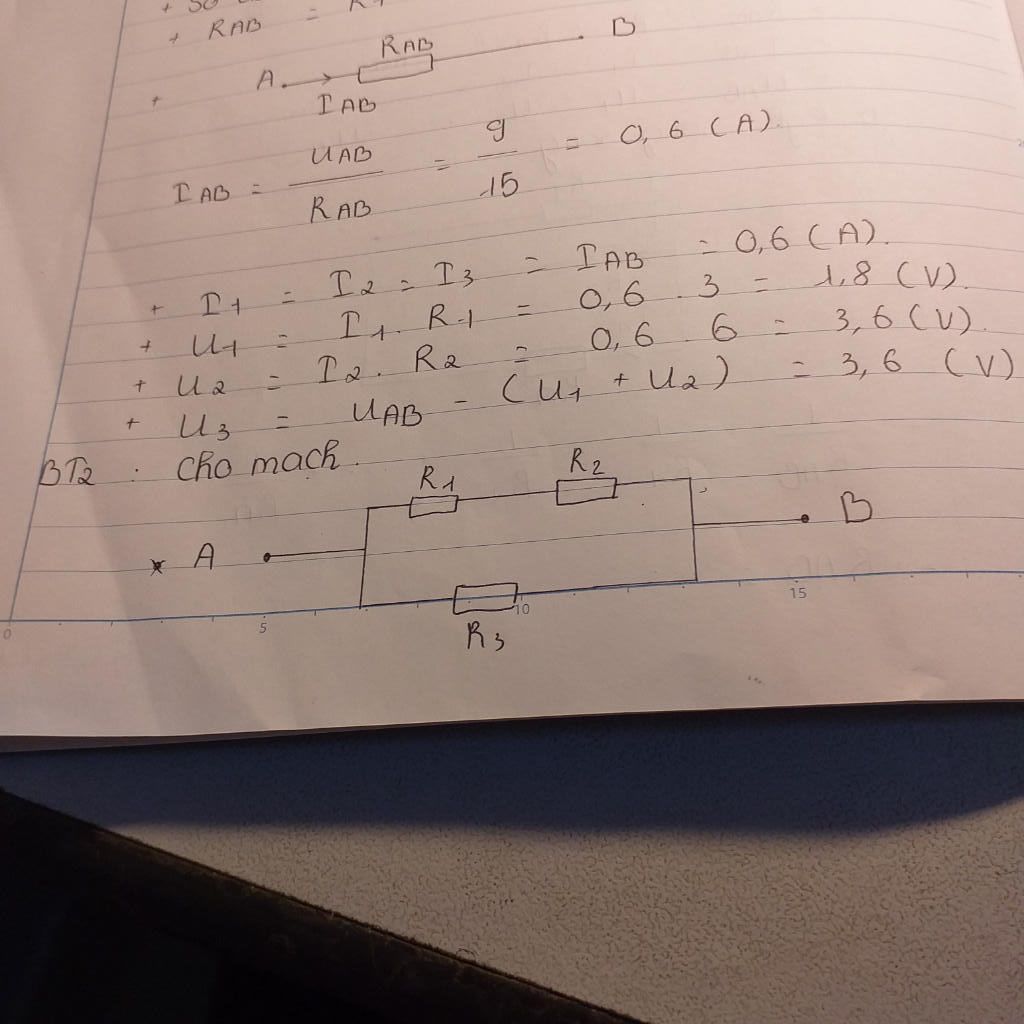 + RAB =
A RAB B
+ IAB
IAB = UAB / RAB = 9 / 15 = 0,6 (A).
+ I1 = I2 = I3 = IAB = 0,6 (A).
+ U1 = I1. R1 = 0,6 . 3 = 1,8 (V).
+ U2 = I2. R2 = 0,6 6 = 3,6 (V).
+ U3 = UAB - (U1 + U2) = 3,6 (V)
BT2 : Cho mạch.
R1 R2
* A B
0 5 10 15
R3